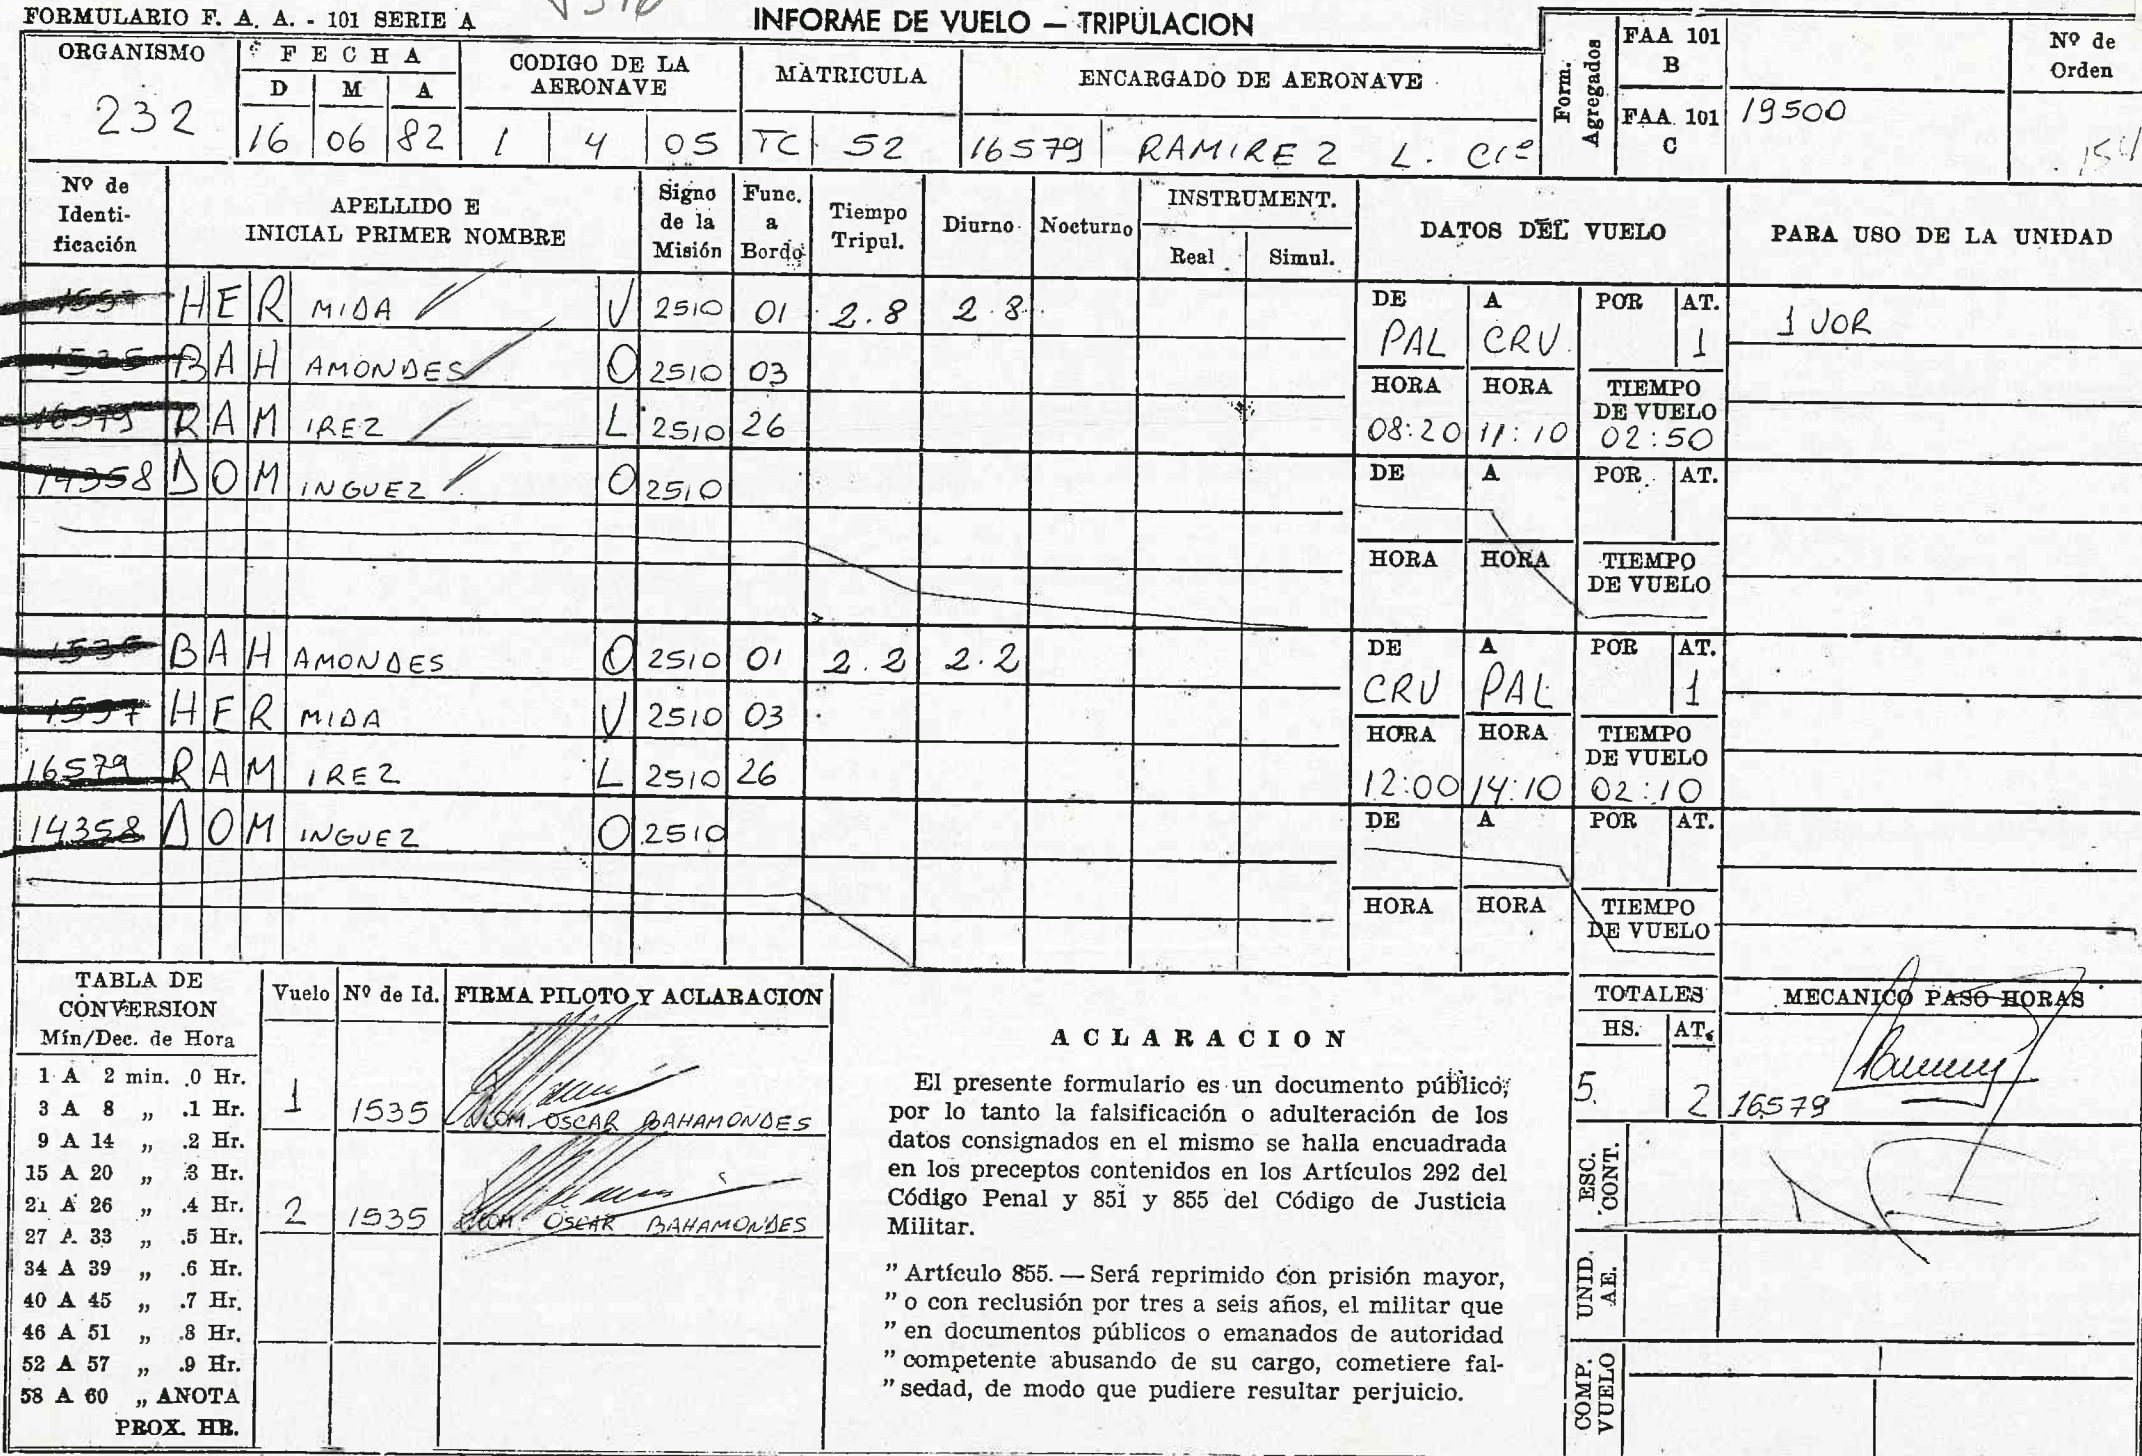 FORMULARIO F. A. A. - 101 SERIE A
INFORME DE VUELO — TRIPULACION
ORGANISMO
232
FECHA
D M A
16 06 82
CODIGO DE LA AERONAVE
1 4 05
MATRICULA
TC 52
ENCARGADO DE AERONAVE
16579 RAMIREZ L.
Form. Agregados
FAA 101 B
FAA 101 C
19500
Nº de Orden
Nº de Identificación
APELLIDO E INICIAL PRIMER NOMBRE
Signo de la Misión
Func. a Bordo
Tiempo Tripul.
Diurno
Nocturno
INSTRUMENT.
Real Simul.
DATOS DEL VUELO
PARA USO DE LA UNIDAD
1 VOR
HERMIDA V 2510 01 2.8 2.8
BAHAMONDES O 2510 03
16579 RAMIREZ L 2510 26
14358 DOMINGUEZ O 2510
DE A POR AT.
PAL CRV 1
HORA HORA TIEMPO DE VUELO
08:20 11:10 02:50
DE A POR AT.
HORA HORA TIEMPO DE VUELO
1535 BAHAMONDES O 2510 01 2.2 2.2
HERMIDA V 2510 03
16579 RAMIREZ L 2510 26
14358 DOMINGUEZ O 2510
DE A POR AT.
CRV PAL 1
HORA HORA TIEMPO DE VUELO
12:00 14:10 02:10
DE A POR AT.
HORA HORA TIEMPO DE VUELO
TABLA DE CONVERSION
Mín/Dec. de Hora
1 A 2 min. .0 Hr.
3 A 8 „ .1 Hr.
9 A 14 „ .2 Hr.
15 A 20 „ .3 Hr.
21 A 26 „ .4 Hr.
27 A 33 „ .5 Hr.
34 A 39 „ .6 Hr.
40 A 45 „ .7 Hr.
46 A 51 „ .8 Hr.
52 A 57 „ .9 Hr.
58 A 60 „ ANOTA
PROX. HR.
Vuelo Nº de Id. FIRMA PILOTO Y ACLARACION
1 1535 OSCAR BAHAMONDES
2 1535 OSCAR BAHAMONDES
ACLARACION
El presente formulario es un documento público,
por lo tanto la falsificación o adulteración de los
datos consignados en el mismo se halla encuadrada
en los preceptos contenidos en los Artículos 292 del
Código Penal y 851 y 855 del Código de Justicia
Militar.
" Artículo 855. — Será reprimido con prisión mayor,
" o con reclusión por tres a seis años, el militar que
" en documentos públicos o emanados de autoridad
" competente abusando de su cargo, cometiere fal-
" sedad, de modo que pudiere resultar perjuicio.
TOTALES
HS. AT.
5. 2
MECANICO PASO HORAS
16579
ESC. CONT.
UNID. AE.
COMP. VUELO